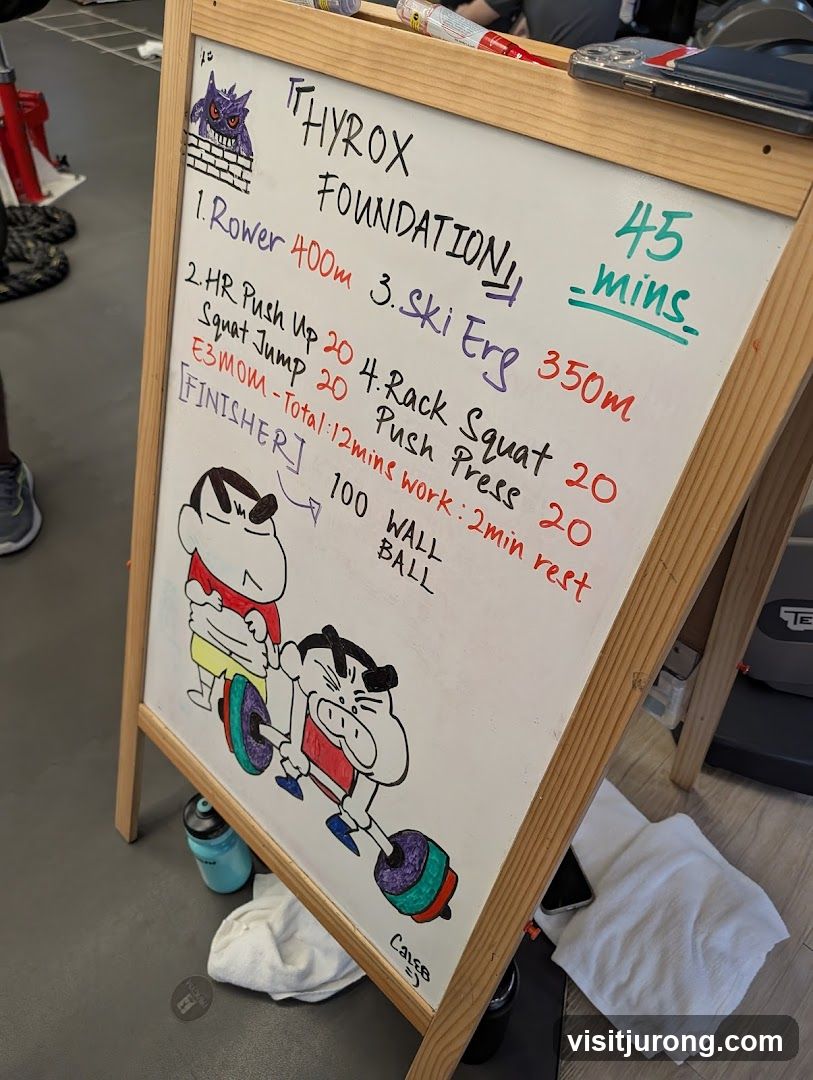 「HYROX
FOUNDATION」
45
mins
1. Rower 400m
2. HR Push Up 20
Squat Jump 20
3. Ski Erg 350m
4. Rack Squat 20
Push Press 20
E3MOM - Total: 12mins work : 2min rest
[FINISHER]
100 WALL
BALL
CALEB
=)
visitjurong.com